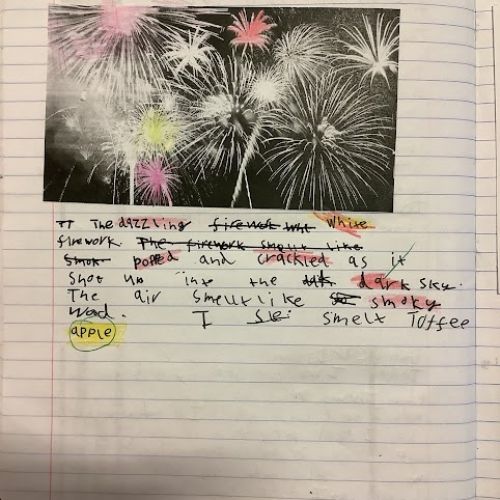 The dazzling firewok wht White
firework. The firework smellt like
Smok popped and crackled as it
Shot up int the dark sky.
The air smellt like smoky
Wood. I smelt Toffee
apple